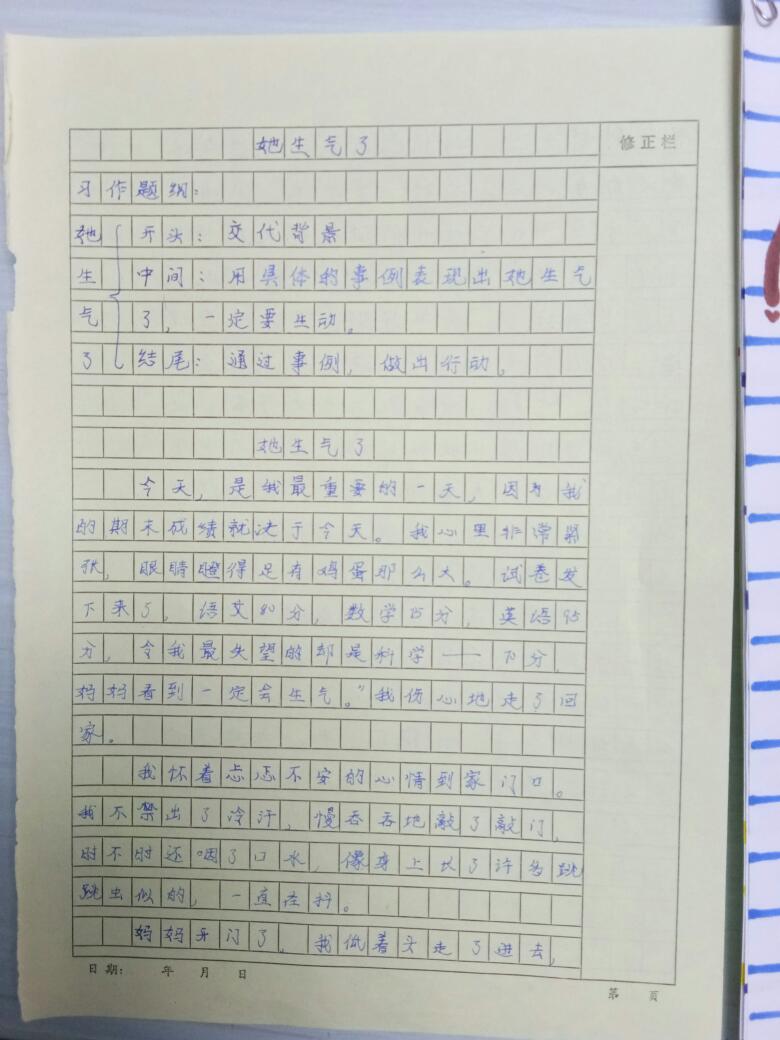 她生气了
修正栏
习作题纲：
她 开头：交代背景
生 中间：用具体的事例表现出她生气
气 了，一定要生动。
了 结尾：通过事例，做出行动。
她生气了
今天，是我最重要的一天，因为我
的期末成绩就决于今天。我心里非常紧
张，眼睛瞪得足有鸡蛋那么大。试卷发
下来了，语文80分，数学75分，英语95
分，令我最失望的却是科学——70分
妈妈看到一定会生气。”我伤心地走了回
家。
我怀着忐忑不安的心情到家门口。
我不禁出了冷汗，慢吞吞地敲了敲门，
时不时还咽了口水，像身上长了许多跳
跳虫似的，一直在抖。
妈妈开门了，我低着头走了进去，
日期： 年 月 日
第 页